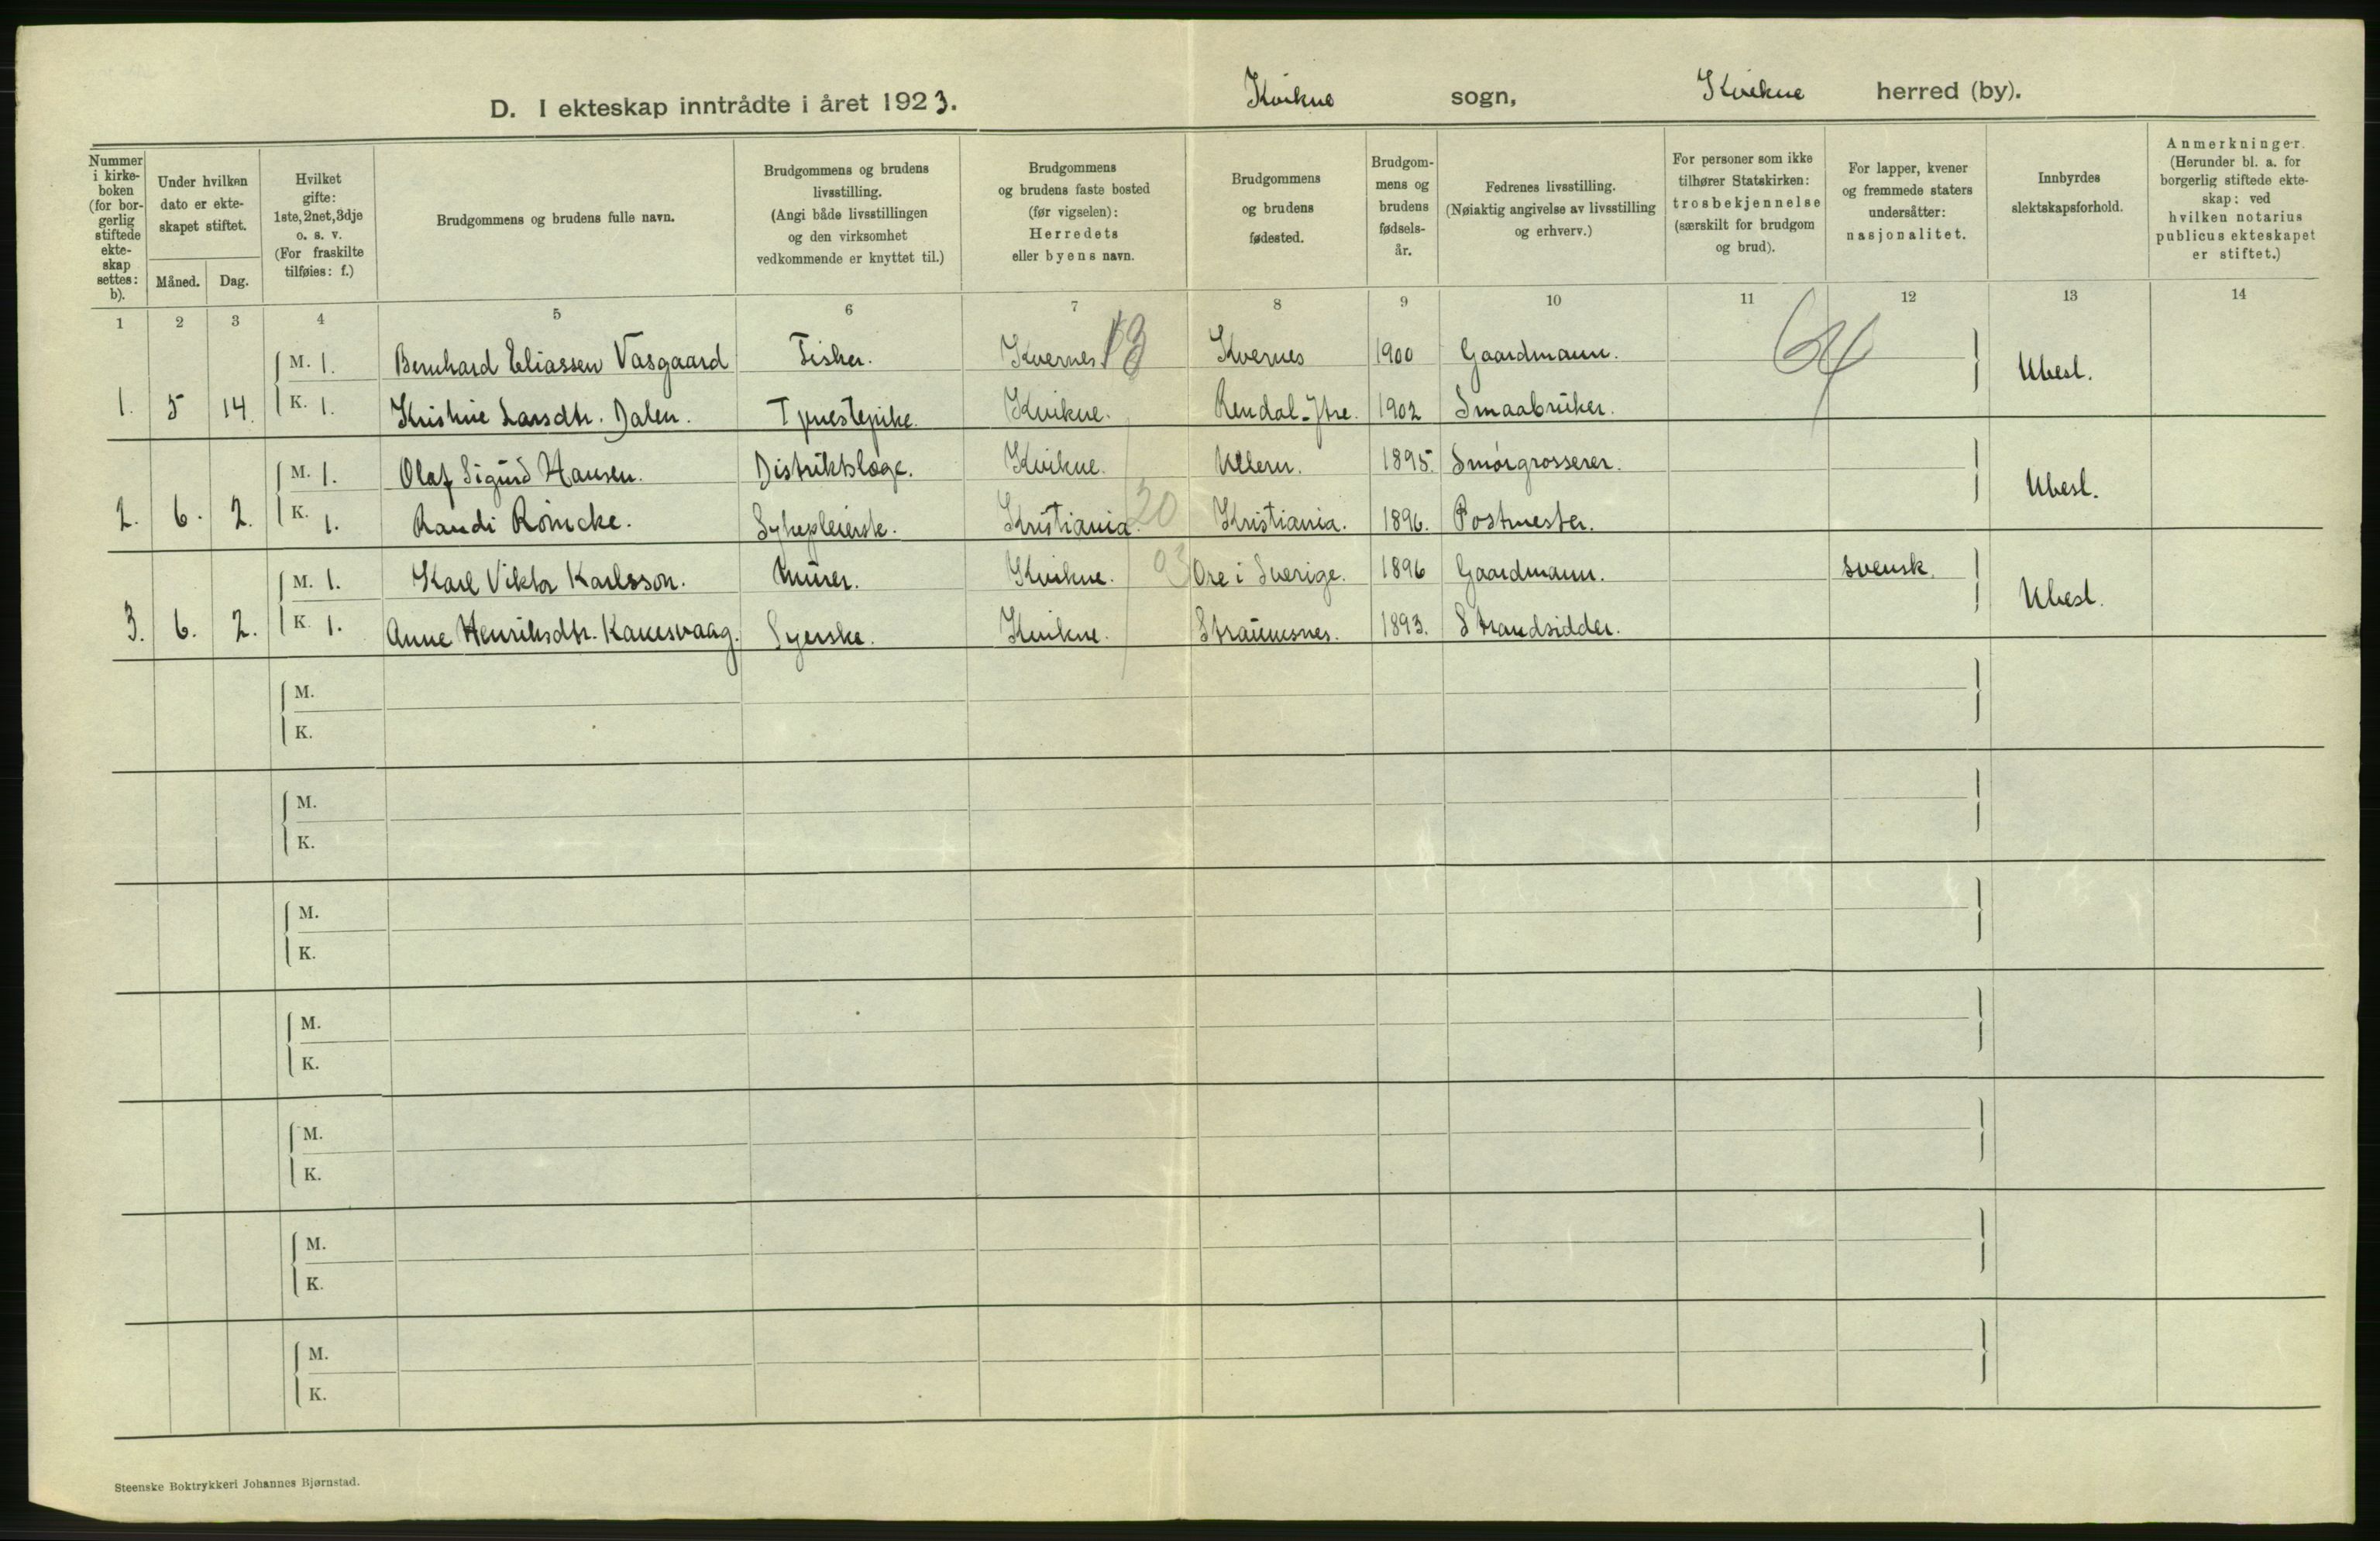 D. I ekteskap inntrådte i året 1923. Kvikne sogn, Kvikne herred (by).
Nummer i kirkeboken (for borgerlig stiftede ekteskap settes: b).
Under hvilken dato er ekteskapet stiftet.
Måned. Dag.
Hvilket gifte: 1ste, 2net, 3dje o. s. v. (For fraskilte tilføies: f.)
Brudgommens og brudens fulle navn.
Brudgommens og brudens livsstilling. (Angi både livsstillingen og den virksomhet vedkommende er knyttet til.)
Brudgommens og brudens faste bosted (før vigselen): Herredets eller byens navn.
Brudgommens og brudens fødested.
Brudgommens og brudens fødselsår.
Fedrenes livsstilling. (Nøiaktig angivelse av livsstilling og erhverv.)
For personer som ikke tilhører Statskirken: trosbekjennelse (særskilt for brudgom og brud).
For lapper, kvener og fremmede staters undersåtter: nasjonalitet.
Innbyrdes slektskapsforhold.
Anmerkninger. (Herunder bl. a. for borgerlig stiftede ekteskap: ved hvilken notarius publicus ekteskapet er stiftet.)
1 2 3 4 5 6 7 8 9 10 11 12 13 14
M. 1. Bernhard Eliassen Vasgaard Fisker. Kvernes 13 Kvernes 1900 Gaardmann. 64 Ubesl.
1. 5 14. K. 1. Kristine Larsdtr. Dalen. Tjenestepike. Kvikne. Rendal-Ytre. 1902 Smaabruker.
M. 1. Olaf Sigurd Hansen. Distriktslæge. Kvikne. Ullern. 1895. Smørgrosserer. Ubesl.
2. 6. 2. K. 1. Randi Rømcke. Sykepleierske. Kristiania. 20 Kristiania. 1896. Postmester.
M. 1. Karl Viktor Karlsson. Murer. Kvikne. 03 Ore i Sverige. 1896 Gaardmann. svensk. Ubesl.
3. 6. 2. K. 1. Anne Henriksdtr. Kanesvaag. Syerske. Kvikne. Straumsnes. 1893. Strandsidder.
M.
K.
M.
K.
M.
K.
M.
K.
M.
K.
M.
K.
M.
K.
Steenske Boktrykkeri Johannes Bjørnstad.